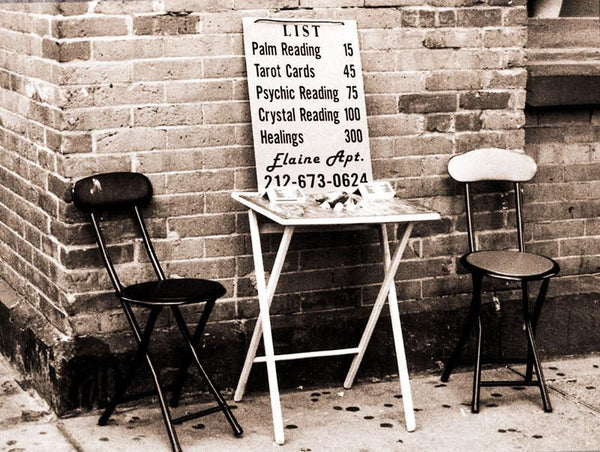 LIST
Palm Reading 15
Tarot Cards 45
Psychic Reading 75
Crystal Reading 100
Healings 300
Elaine Apt.
212-673-0624